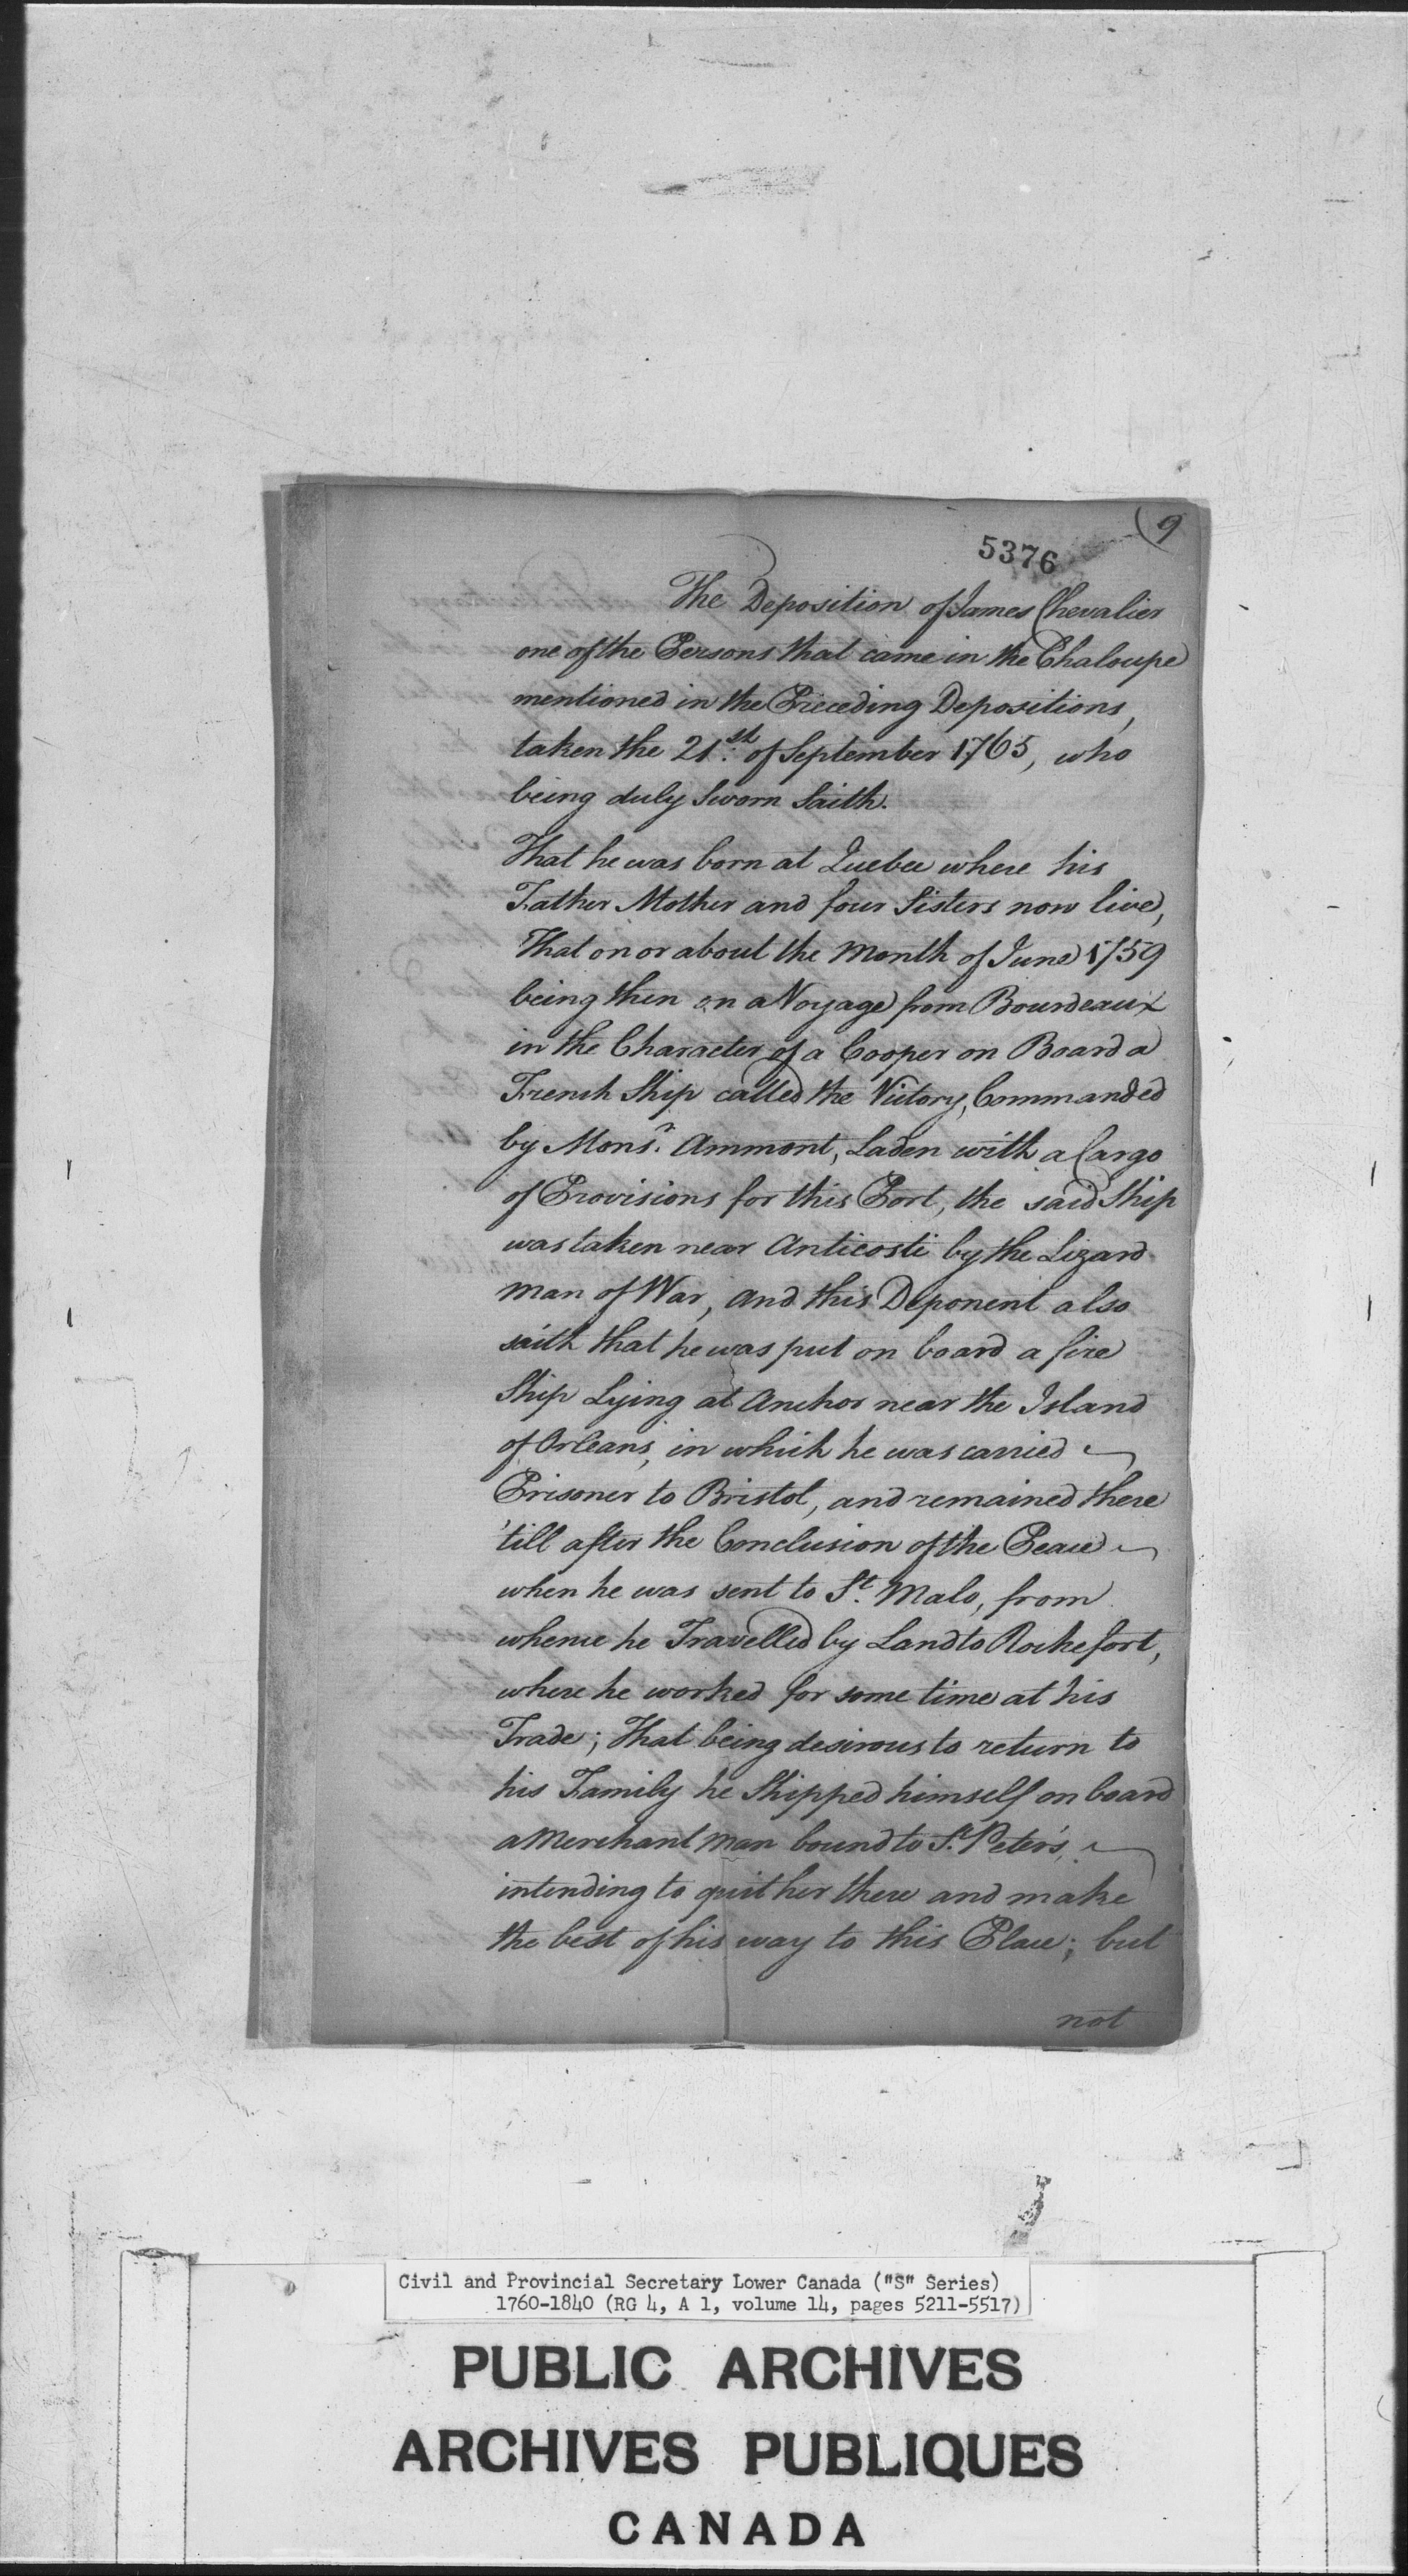 (9
5376
The Deposition of James Chevalier
one of the Persons that came in the Chaloupe
mentioned in the Preceding Depositions,
taken the 21.st of September 1765, who
being duly Sworn Saith.
That he was born at Quebec where his
Father Mother and four Sisters now live,
That on or about the Month of June 1759
being then on a Voyage from Bourdeaux
in the Character of a Cooper on Board a
French Ship called the Victory, Commanded
by Monsr. Ammont, Laden with a Cargo
of Provisions for this Port, the said Ship
was taken near Anticosti by the Lizard
Man of War, and this Deponent also
saith that he was put on board a fire
Ship Lying at Anchor near the Island
of Orleans, in which he was carried
Prisoner to Bristol, and remained there
'till after the Conclusion of the Peace
when he was sent to St. Malo, from
whence he Travelled by Land to Rochefort,
where he worked for some time at his
Trade; That being desirous to return to
his Family he Shipped himself on board
a Merchant Man bound to St. Peter's,
intending to quit her there and make
the best of his way to this Place; but
not
Civil and Provincial Secretary Lower Canada ("S" Series)
1760-1840 (RG 4, A 1, volume 14, pages 5211-5517)
PUBLIC ARCHIVES
ARCHIVES PUBLIQUES
CANADA